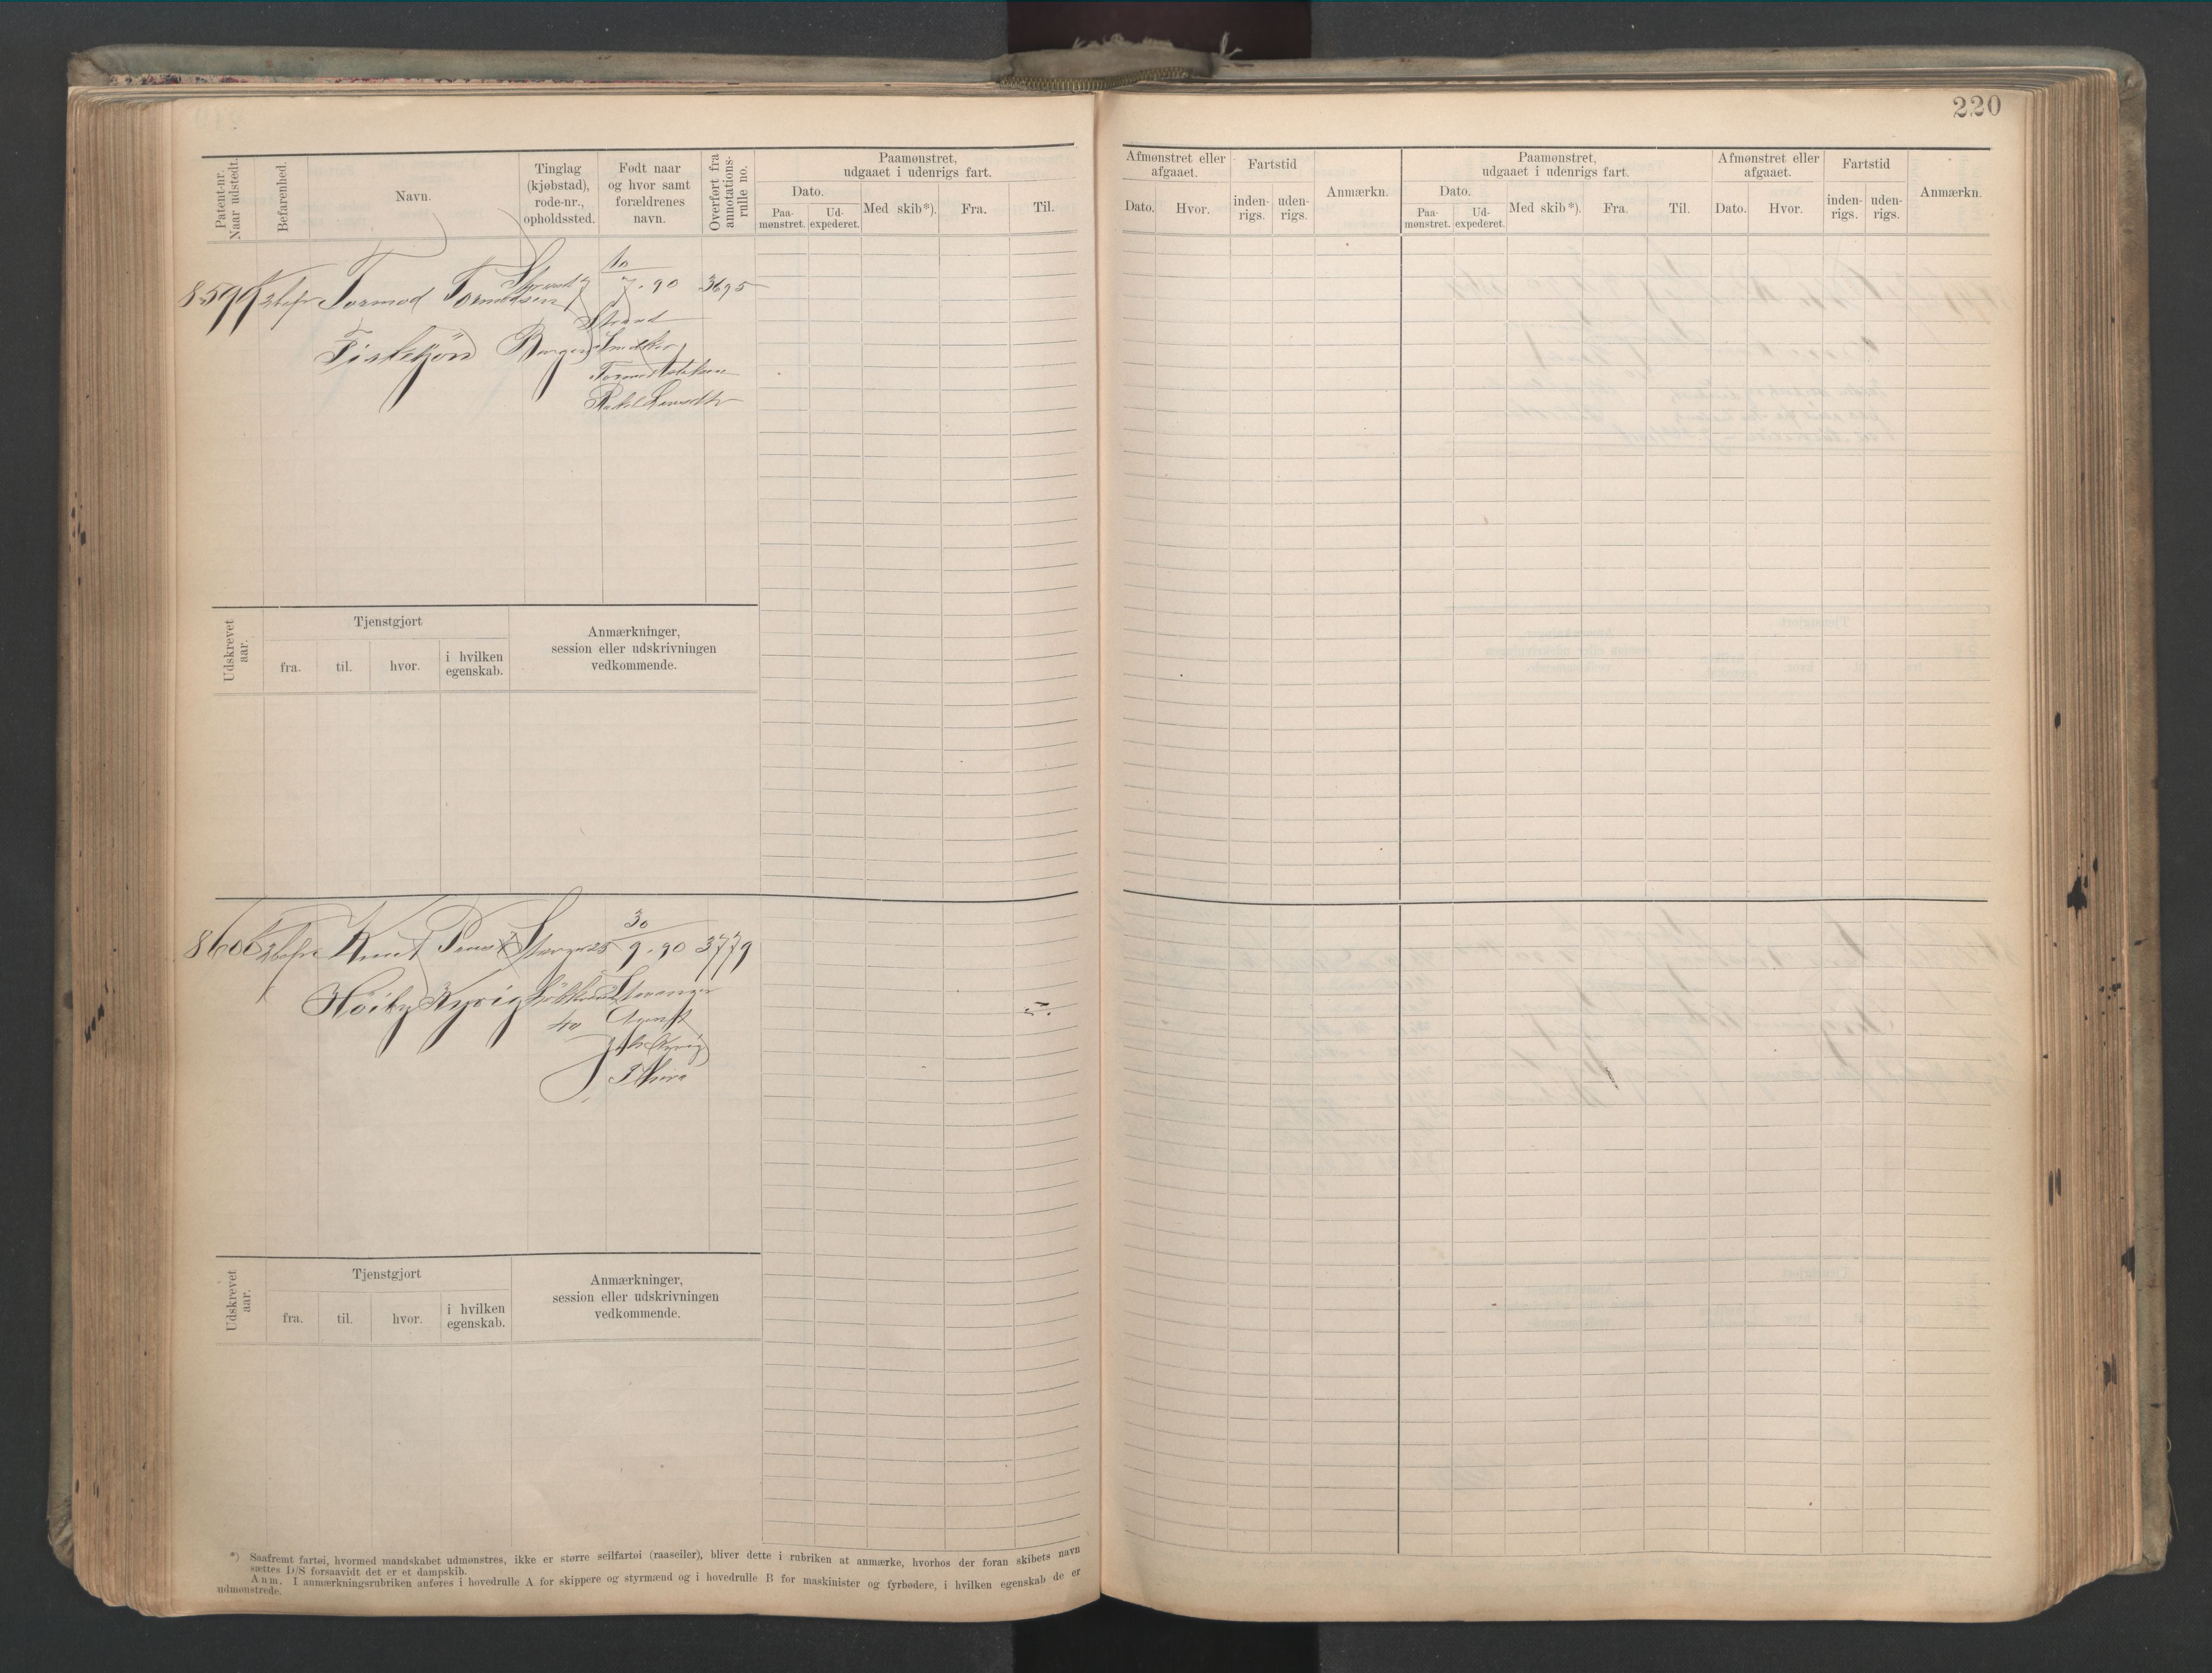 220
Patent-nr. Naar udstedt.
Befarenhed.
Navn.
Tinglag (kjøbstad), rode-nr., opholdssted.
Født naar og hvor samt forældrenes navn.
Overført fra annotations-rulle no.
Paamønstret, udgaaet i udenrigs fart.
Dato.
Paa-mønstret.
Ud-expederet.
Med skib*).
Fra.
Til.
Afmønstret eller afgaaet.
Dato.
Hvor.
Fartstid
inden-rigs.
uden-rigs.
Anmærkn.
Paamønstret, udgaaet i udenrigs fart.
Dato.
Paa-mønstret.
Ud-expederet.
Med skib*).
Fra.
Til.
Afmønstret eller afgaaet.
Dato.
Hvor.
Fartstid
inden-rigs.
uden-rigs.
Anmærkn.
8599 Tormod Tormodsen 10/7.90 3695
Strand
Udskrevet aar.
Tjenstgjort
fra.
til.
hvor.
i hvilken egenskab.
Anmærkninger, session eller udskrivningen vedkommende.
8600 Knut 30/9.90 3779
Høiby Kyvig Stavanger
40
Udskrevet aar.
Tjenstgjort
fra.
til.
hvor.
i hvilken egenskab.
Anmærkninger, session eller udskrivningen vedkommende.
*) Saafremt fartøi, hvormed mandskabet udmønstres, ikke er større seilfartøi (raaseiler), bliver dette i rubriken at anmærke, hvorhos der foran skibets navn
sættes D/S forsaavidt det er et dampskib.
Anm. I anmærkningsrubriken anføres i hovedrulle A for skippere og styrmænd og i hovedrulle B for maskinister og fyrbødere, i hvilken egenskab de er
udmønstrede.